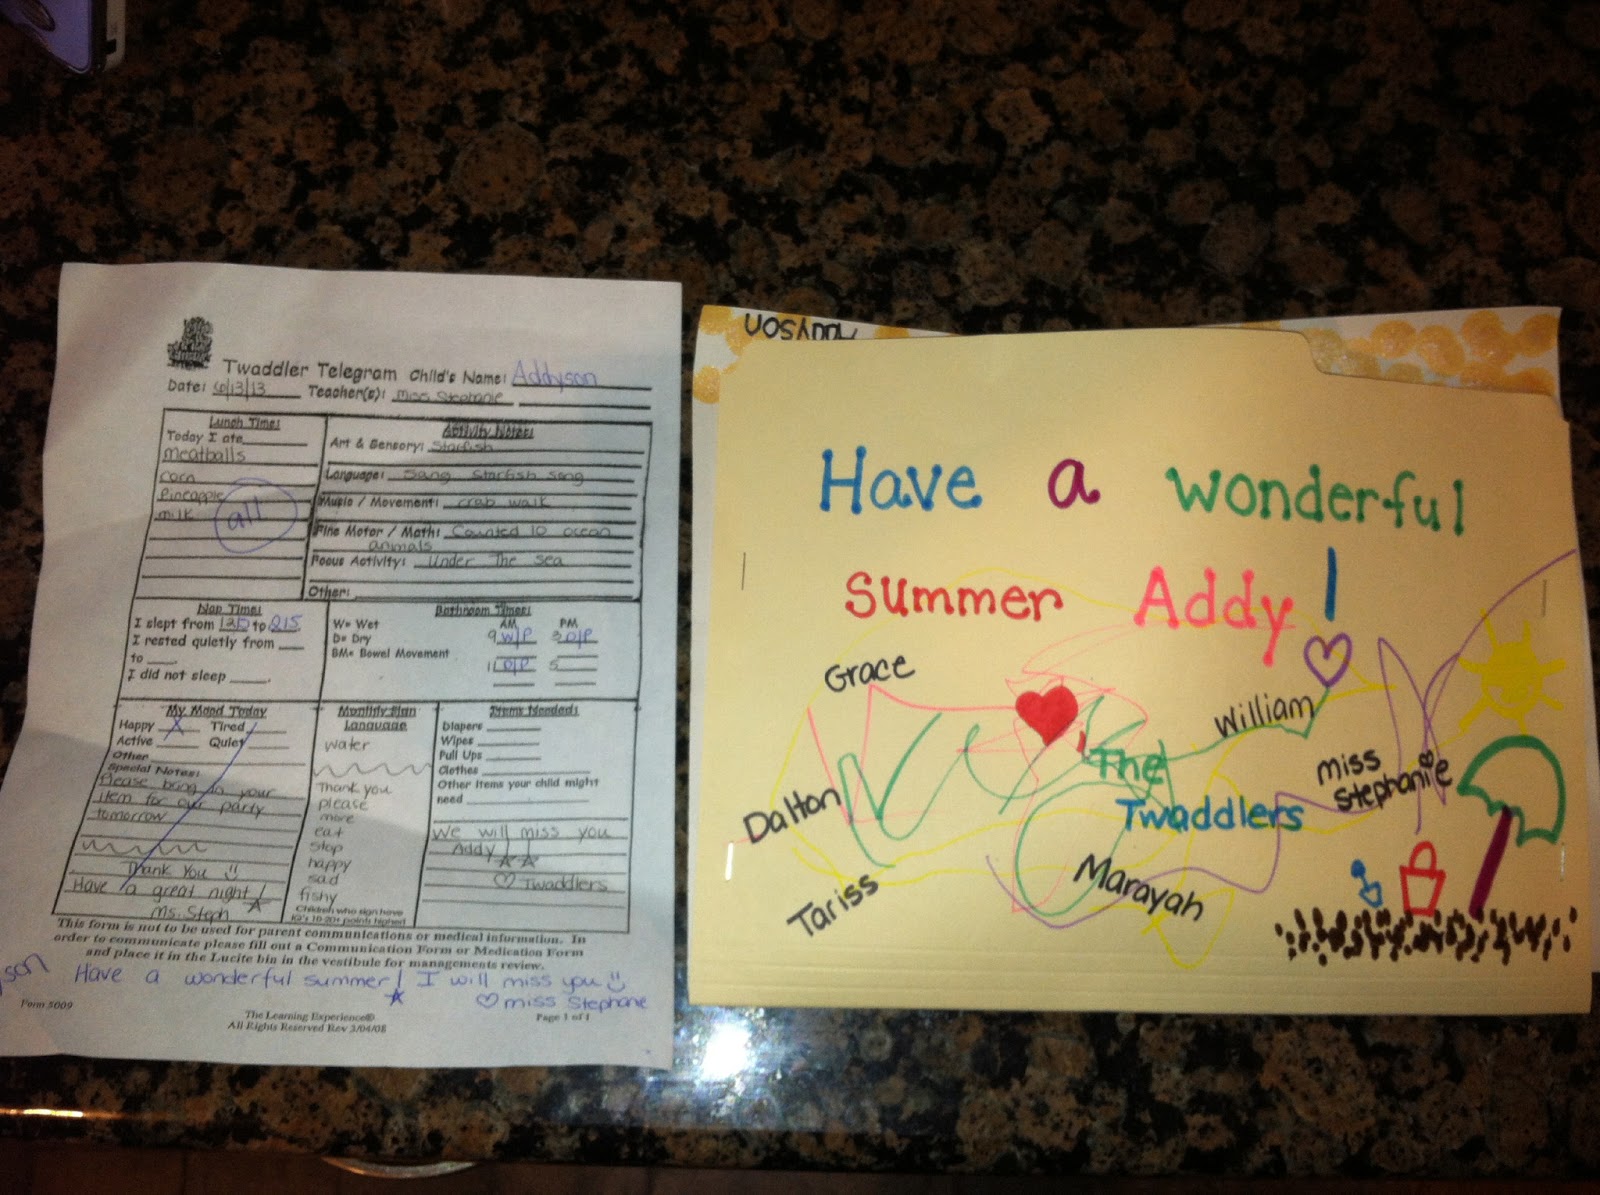 Twaddler Telegram Child's Name: Addyson
Date: 6/13/13 Teacher(s): Miss Stephanie
Lunch Time:
Today I ate
Meatballs
corn
Pineapple
milk
all
Activity Notes:
Art & Sensory: Starfish
Language: Sang Starfish song
Music / Movement: crab walk
Fine Motor / Math: Counted 10 ocean
animals
Focus Activity: Under The Sea
Other:
Nap Time:
I slept from to 215
I rested quietly from
to
I did not sleep
Bathroom Times:
W= Wet
D= Dry
BM= Bowel Movement
AM PM
9 W/P 3 D/P
11 D/P 5
My Mood Today
Happy X Tired
Active Quiet
Other
Special Notes:
Please bring in your
item for our party
tomorrow
Thank You
Have a great night!
Ms. Steph
Monthly Sign
Language
water
Thank you
please
more
eat
stop
happy
sad
fishy
Children who sign have
IQ's 10-20+ points highest
Items Needed:
Diapers
Wipes
Pull Ups
Clothes
Other items your child might
need
We will miss you
Addy!!
♡ Twaddlers
This form is not to be used for parent communications or medical information. In
order to communicate please fill out a Communication Form or Medication Form
and place it in the Lucite bin in the vestibule for managements review.
Have a wonderful summer! I will miss you
♡ miss Stephanie
Form 5009
The Learning Experience®
All Rights Reserved Rev 3/04/08
Page 1 of 1
Addyson
Have a wonderful
summer Addy!
Grace
William
The
Twaddlers
miss
Stephanie
Dalton
Tariss
Marayah